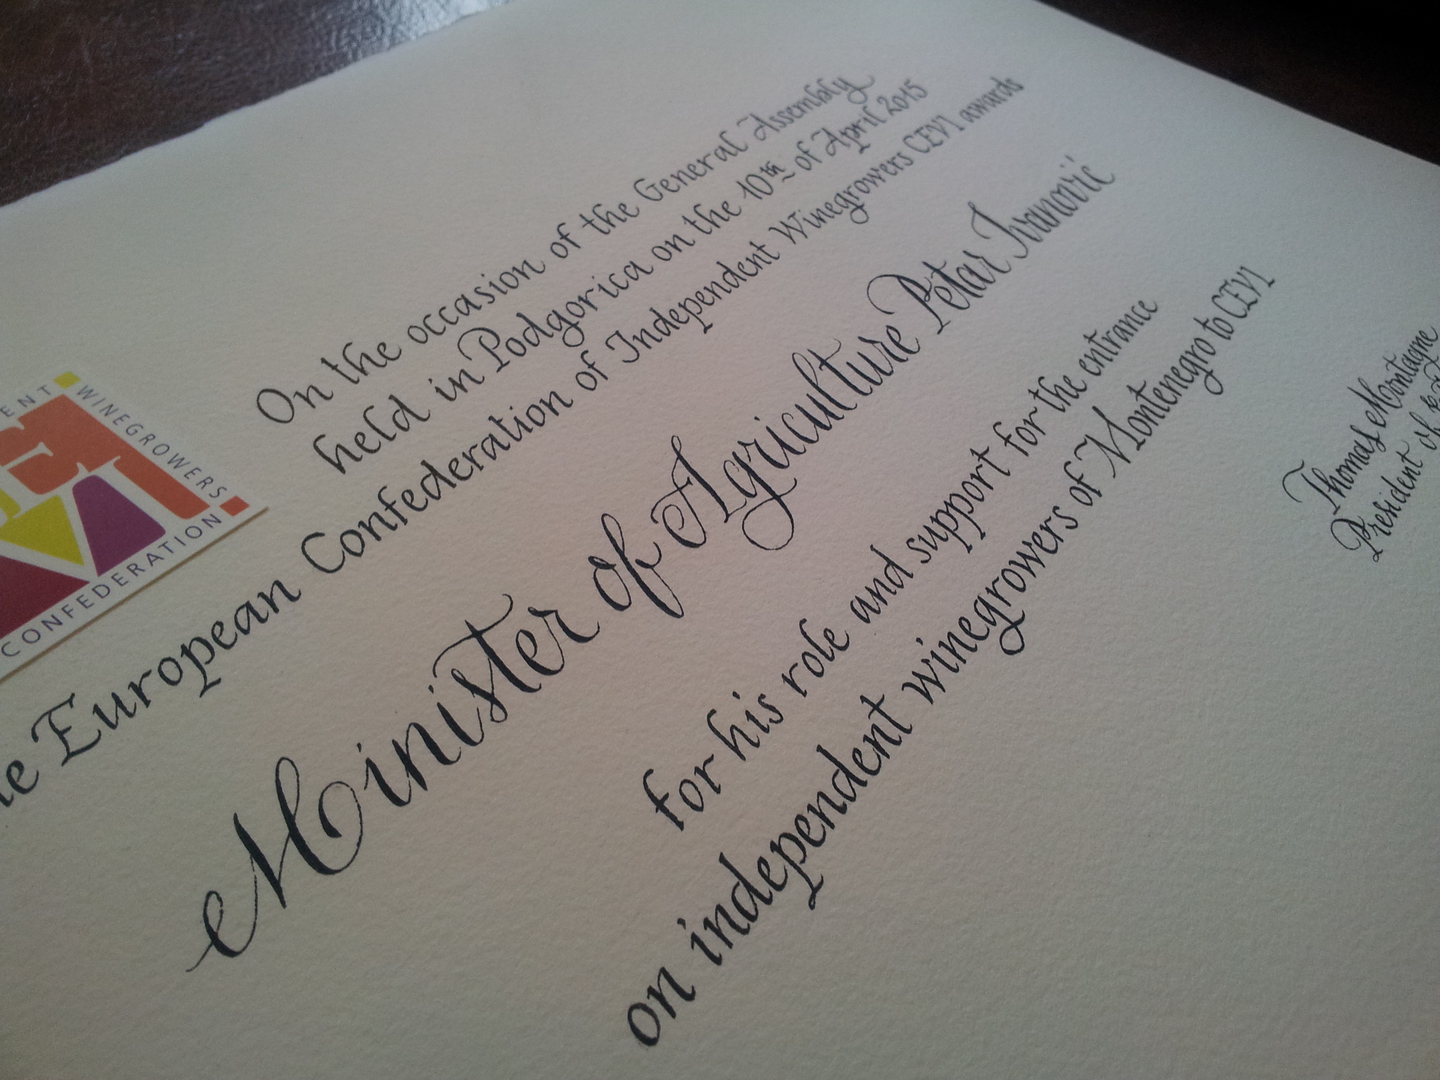 On the occasion of the General Assembly
held in Podgorica on the 10th of April 2015
European Confederation of Independent Winegrowers CEVI awards
Minister of Agriculture Petar Ivanović
for his role and support for the entrance
on independent winegrowers of Montenegro to CEVI
Thomas Montagne
President of
WINEGROWERS
CONFEDERATION